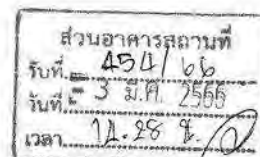 ส่วนอาคารสถานที่
รับที่ 454/66
วันที่ - 3 มี.ค. 2566
เวลา 14.28 น.